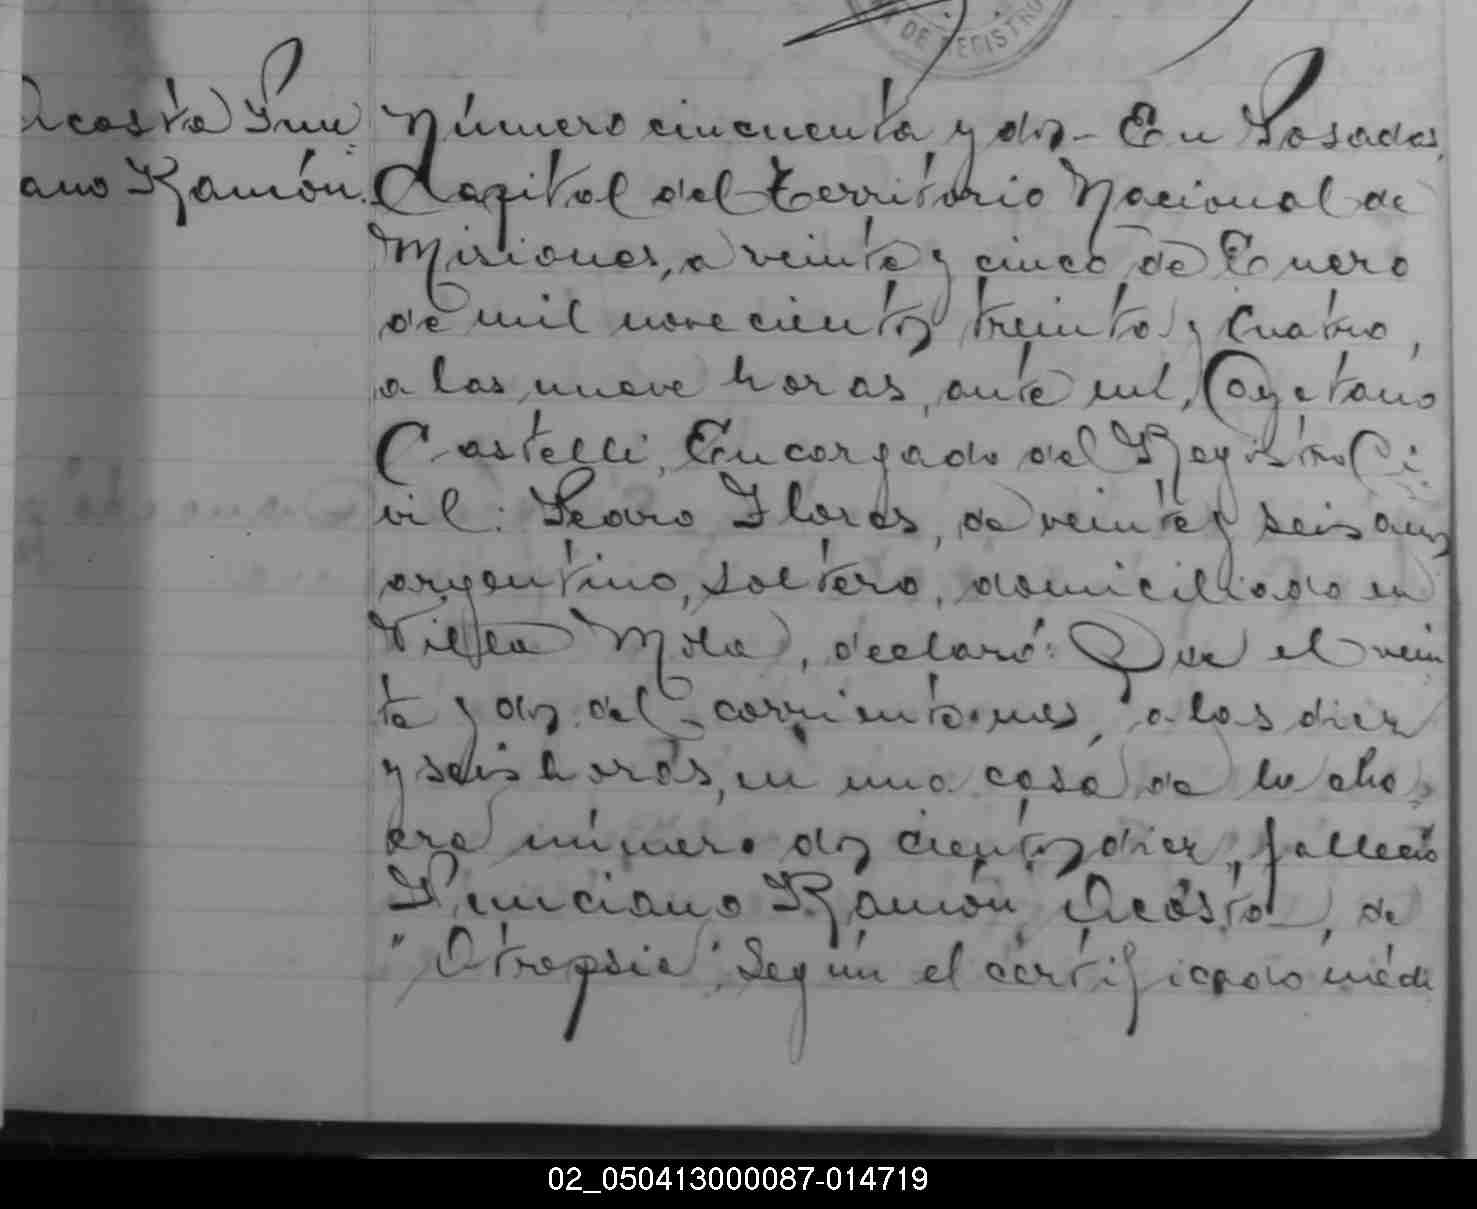 DE REGISTRO
Acosta
Ramón.
Número cincuenta y dos - En Posadas,
Capital del Territorio Nacional de
Misiones, a veinte y cinco de Enero
de mil novecientos treinta y cuatro,
a las nueve horas, ante mi, Cayetano
Castelli, Encargado del Registro Ci
vil: Pedro Flores, de veinte y seis años
argentino, soltero, domiciliado en
Villa Mota, declaró: Que el vein
te y dos del corriente mes, a las diez
y seis horas, en una casa de la cha
cra número dos cientos diez, falleció
Ramón Acosta, de
"Atrepsia", según el certificado médi
02_050413000087-014719